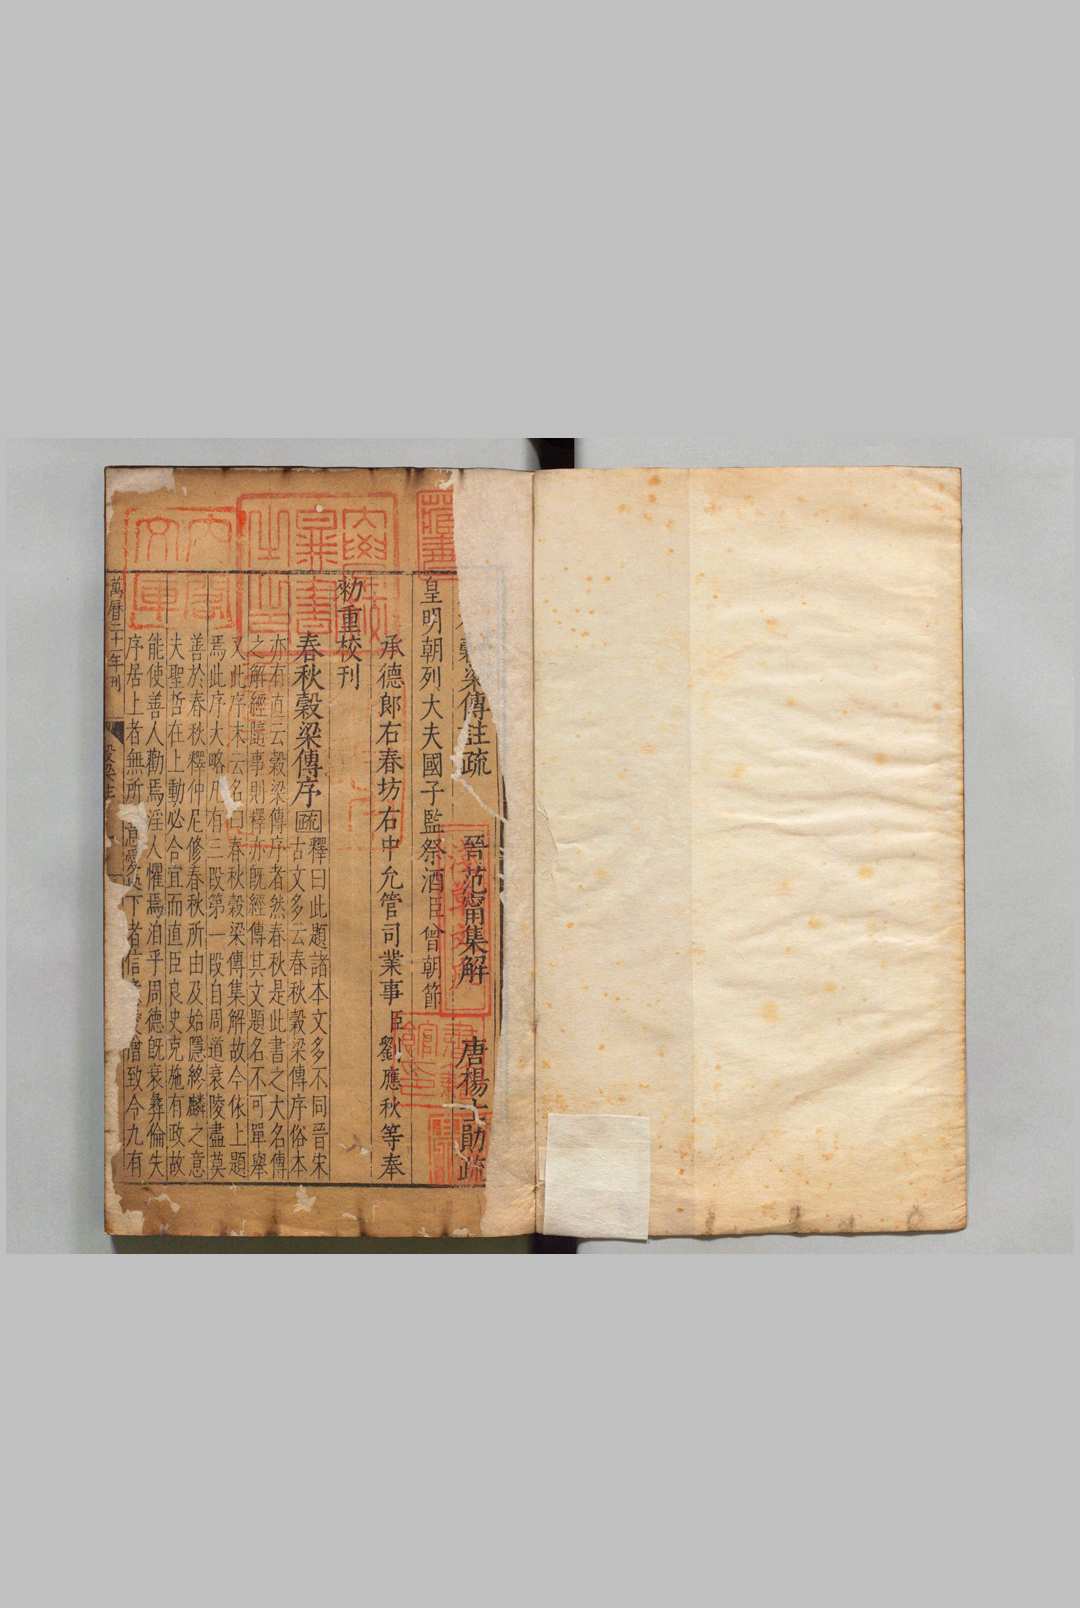 穀梁傳註疏 晉范甯集解 唐楊士勛疏
皇明朝列大夫國子監祭酒臣曾朝節
承德郎右春坊右中允管司業事臣劉應秋等奉
勑重校刊
春秋穀梁傳序 疏 釋曰此題諸本文多不同晉宋
古文多云春秋穀梁傳序俗本
亦有直云穀梁傳序者然春秋是此書之大名傳
之解經隨事則釋亦既經傳共文題名不可單舉
又此序末云名曰春秋穀梁傳集解故今依上題
焉此序大略凡有三段第一段自周道衰陵盡莫
善於春秋釋仲尼修春秋所由及始隱終麟之意
夫聖哲在上動必合宜而直臣良史克施有政故
能使善人勸焉淫人懼焉洎乎周德既衰彝倫失
序居上者無所 下者信 僭致今九有
萬曆二十一年刊
內閣文庫